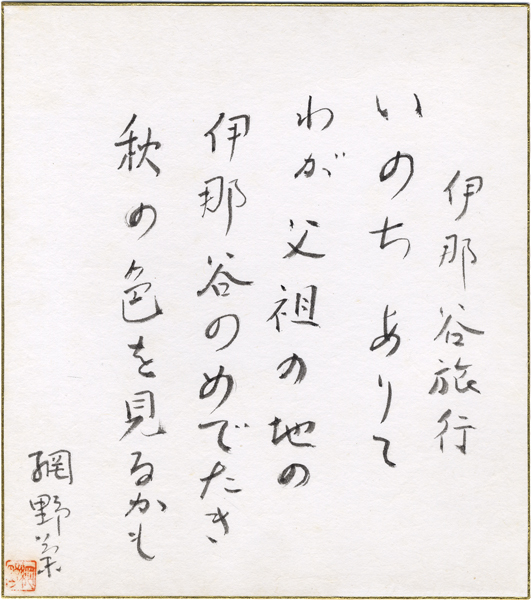 伊那谷旅行
いのちありて
わが父祖の地の
伊那谷のめでたき
秋の色を見るかも
網野菊